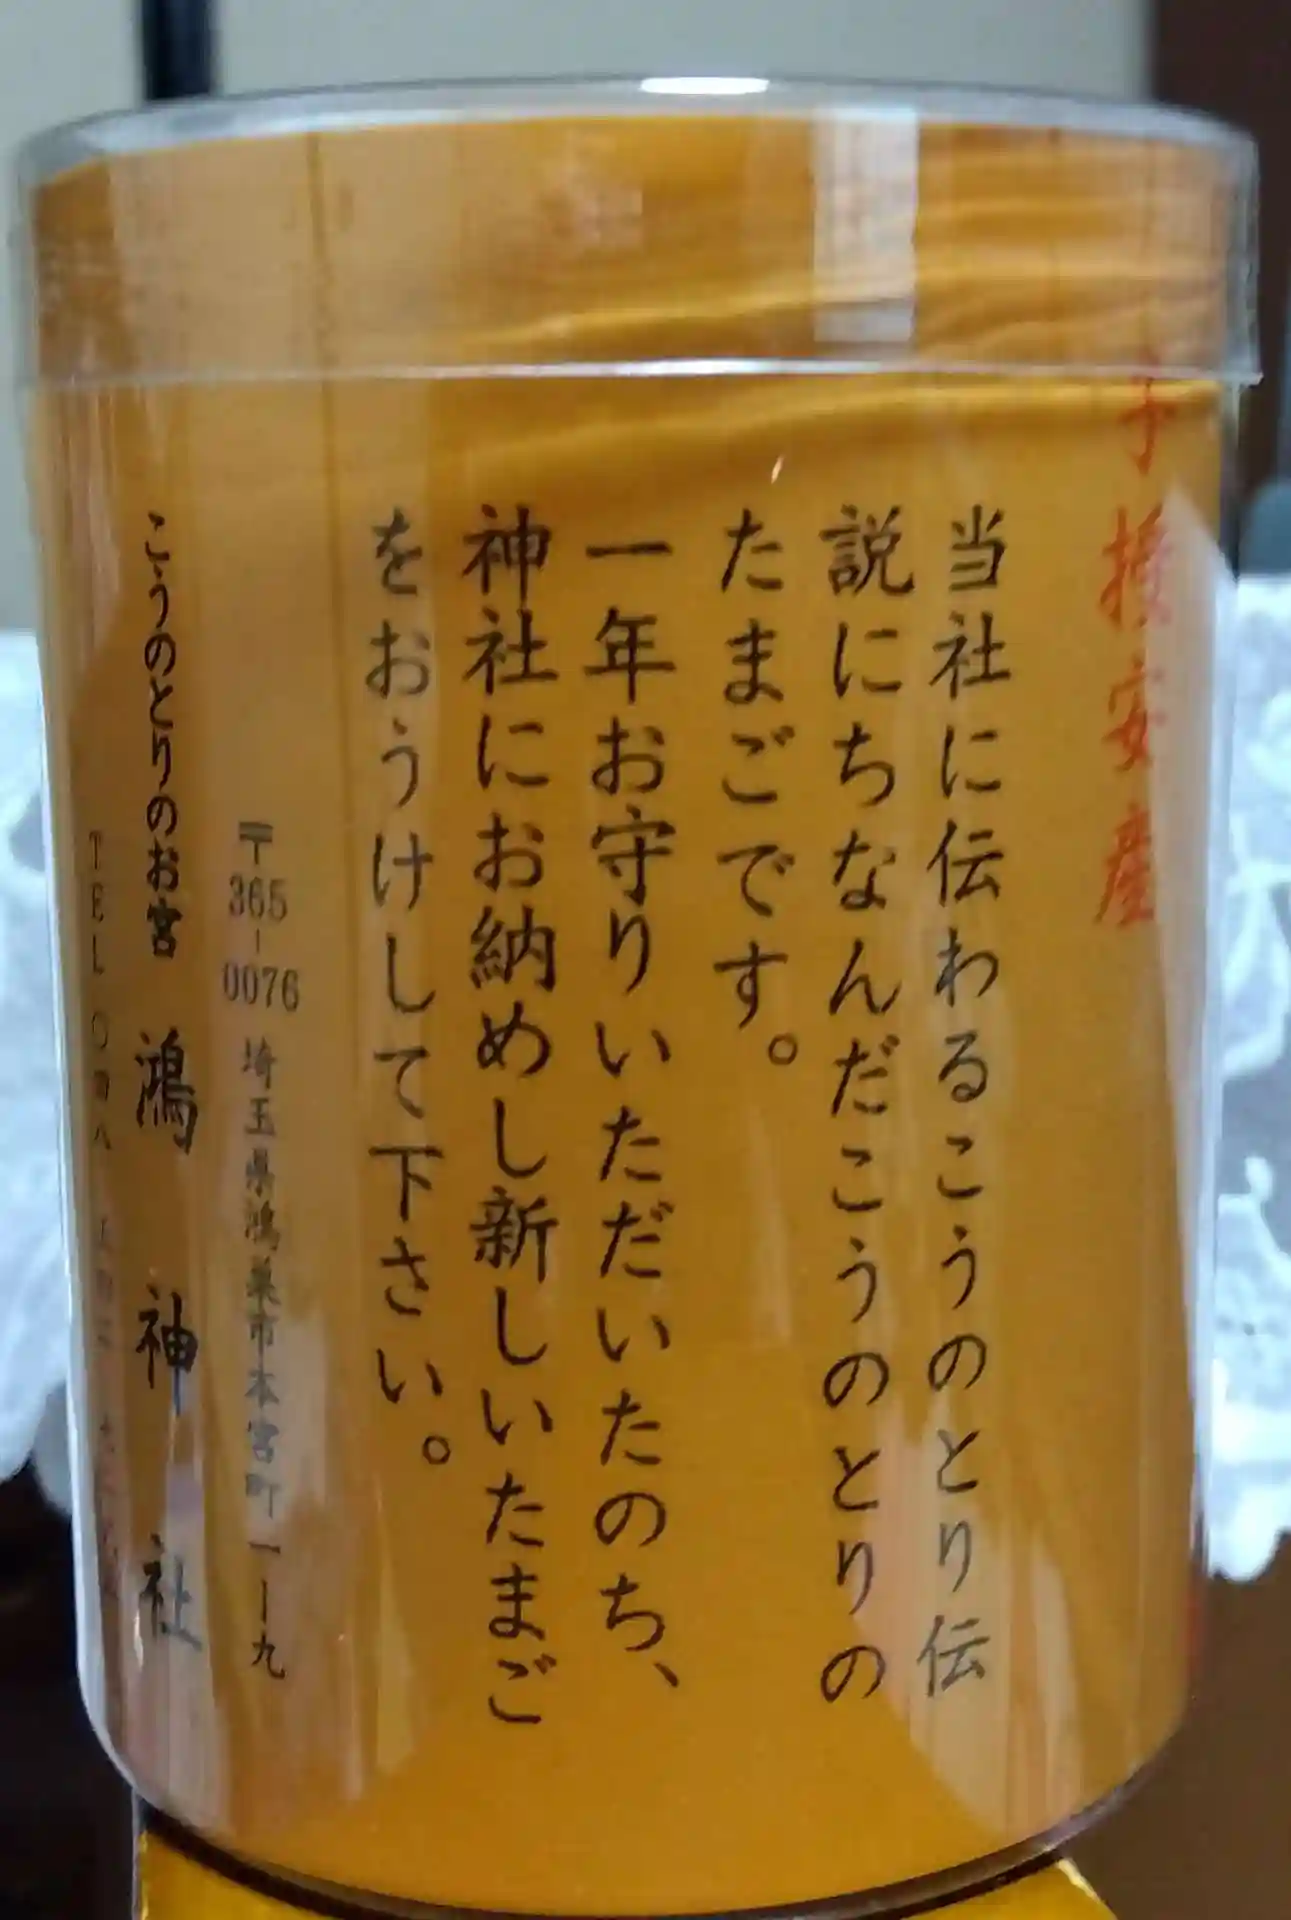 子授安産
当社に伝わるこうのとり伝
説にちなんだこうのとりの
たまごです。
一年お守りいただいたのち、
神社にお納めし新しいたまご
をおうけして下さい。
〒365-0076 埼玉県鴻巣市本宮町一ー九
こうのとりのお宮 鴻神社
TEL 〇四八